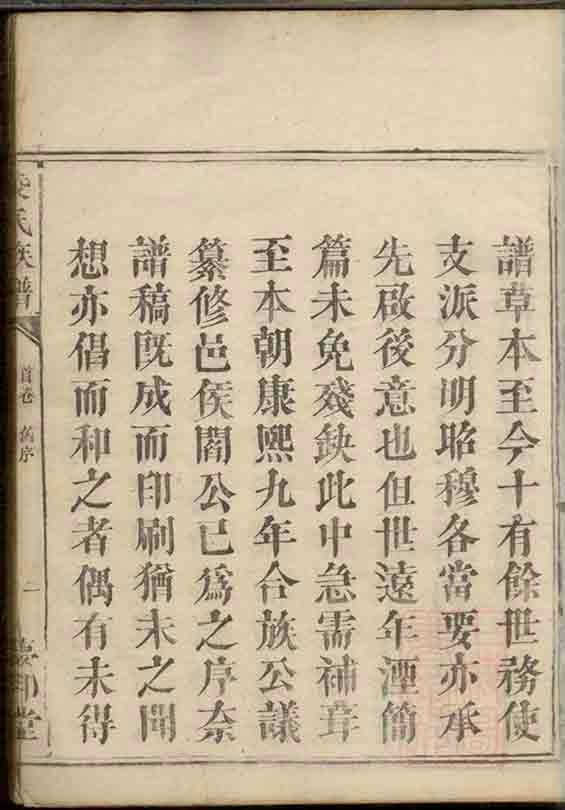 譜草本至今十有餘世務使
支派分明昭穆各當要亦承
先啟後意也但世遠年湮簡
篇未免殘缺此中急需補葺
至本朝康熙九年合族公議
纂修邑侯閻公已為之序奈
譜稿既成而印刷猶未之聞
想亦倡而和之者偶有未得
氏族譜
首卷 舊序
二
堂